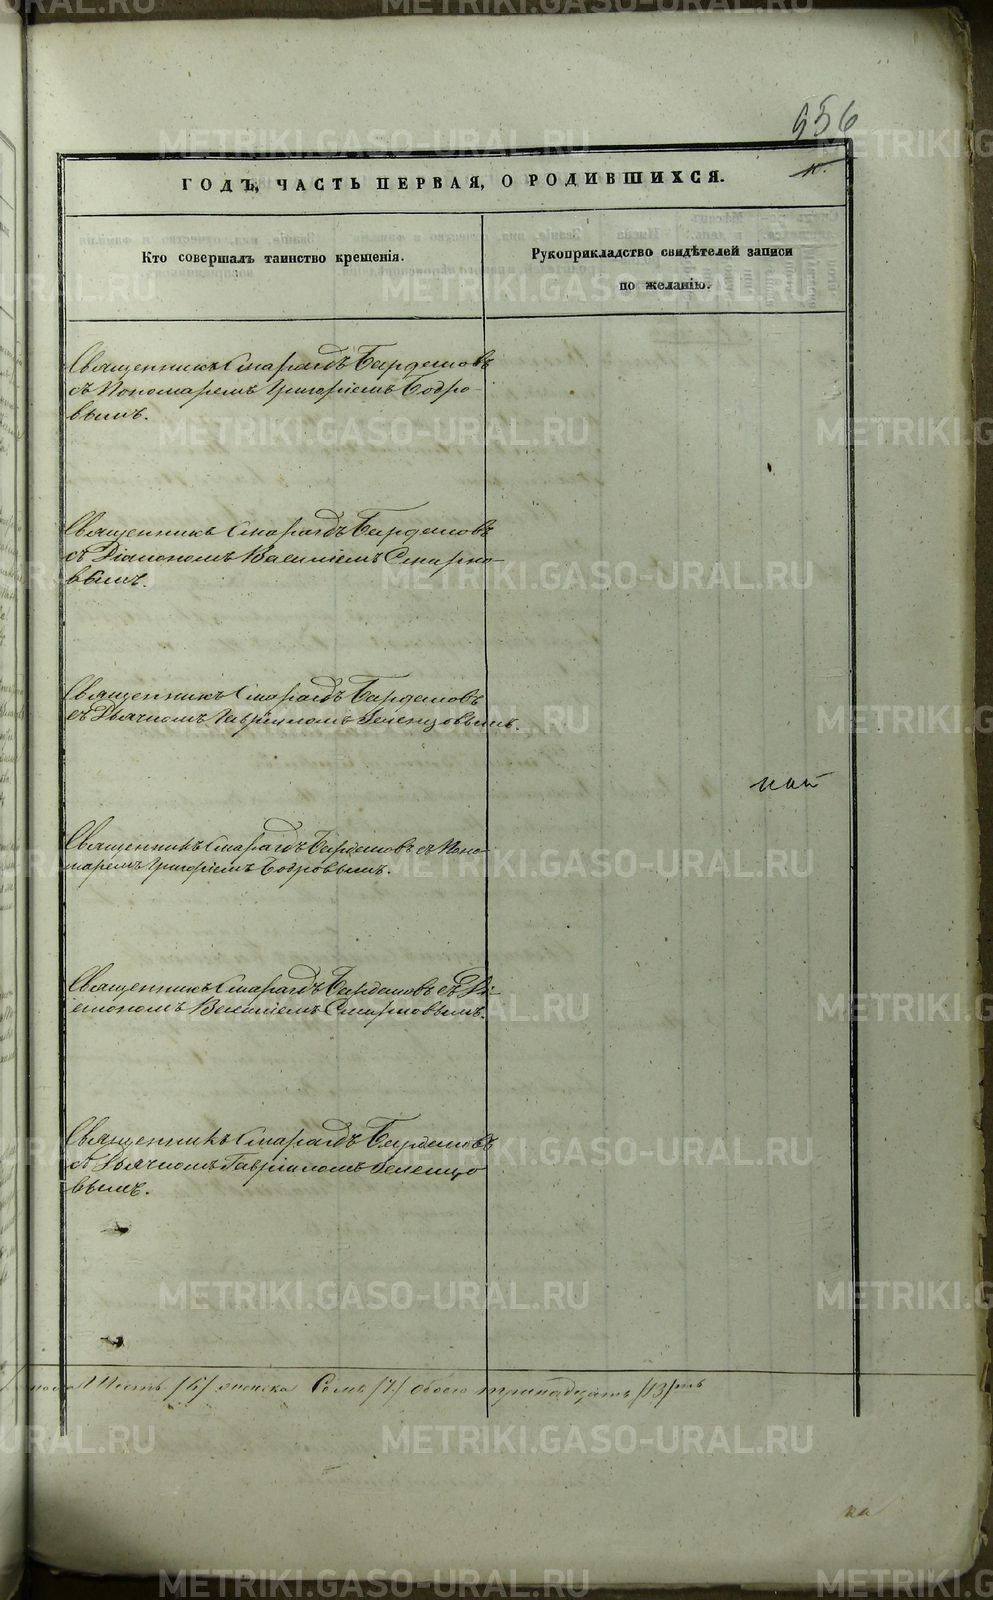 956
ГОДЪ, ЧАСТЬ ПЕРВАЯ, О РОДИВШИХСЯ.
Кто совершалъ таинство крещенія.
Рукоприкладство свидѣтелей записи
по желанію.
Священникъ Смарагдъ Бирдемовъ
съ Пономаремъ Григоріемъ Бодро-
вымъ.
Священникъ Смарагдъ Бирдемовъ
съ Діакономъ Василіемъ Смирно-
вымъ.
Священникъ Смарагдъ Бирдемовъ
съ Дьячкомъ Гавріиломъ Зеленцовымъ.
Священникъ Смарагдъ Бирдемовъ съ Поно-
маремъ Григоріемъ Бодровымъ.
Священникъ Смарагдъ Бирдемовъ съ Ді-
акономъ Василіемъ Смирновымъ.
Священникъ Смарагдъ Бирдемовъ
съ Дьячкомъ Гавріиломъ Зеленцо
вымъ.
Шесть /6/ женска Семь /7/ обоего тринадцать /13/ть
METRIKI.GASO-URAL.RU